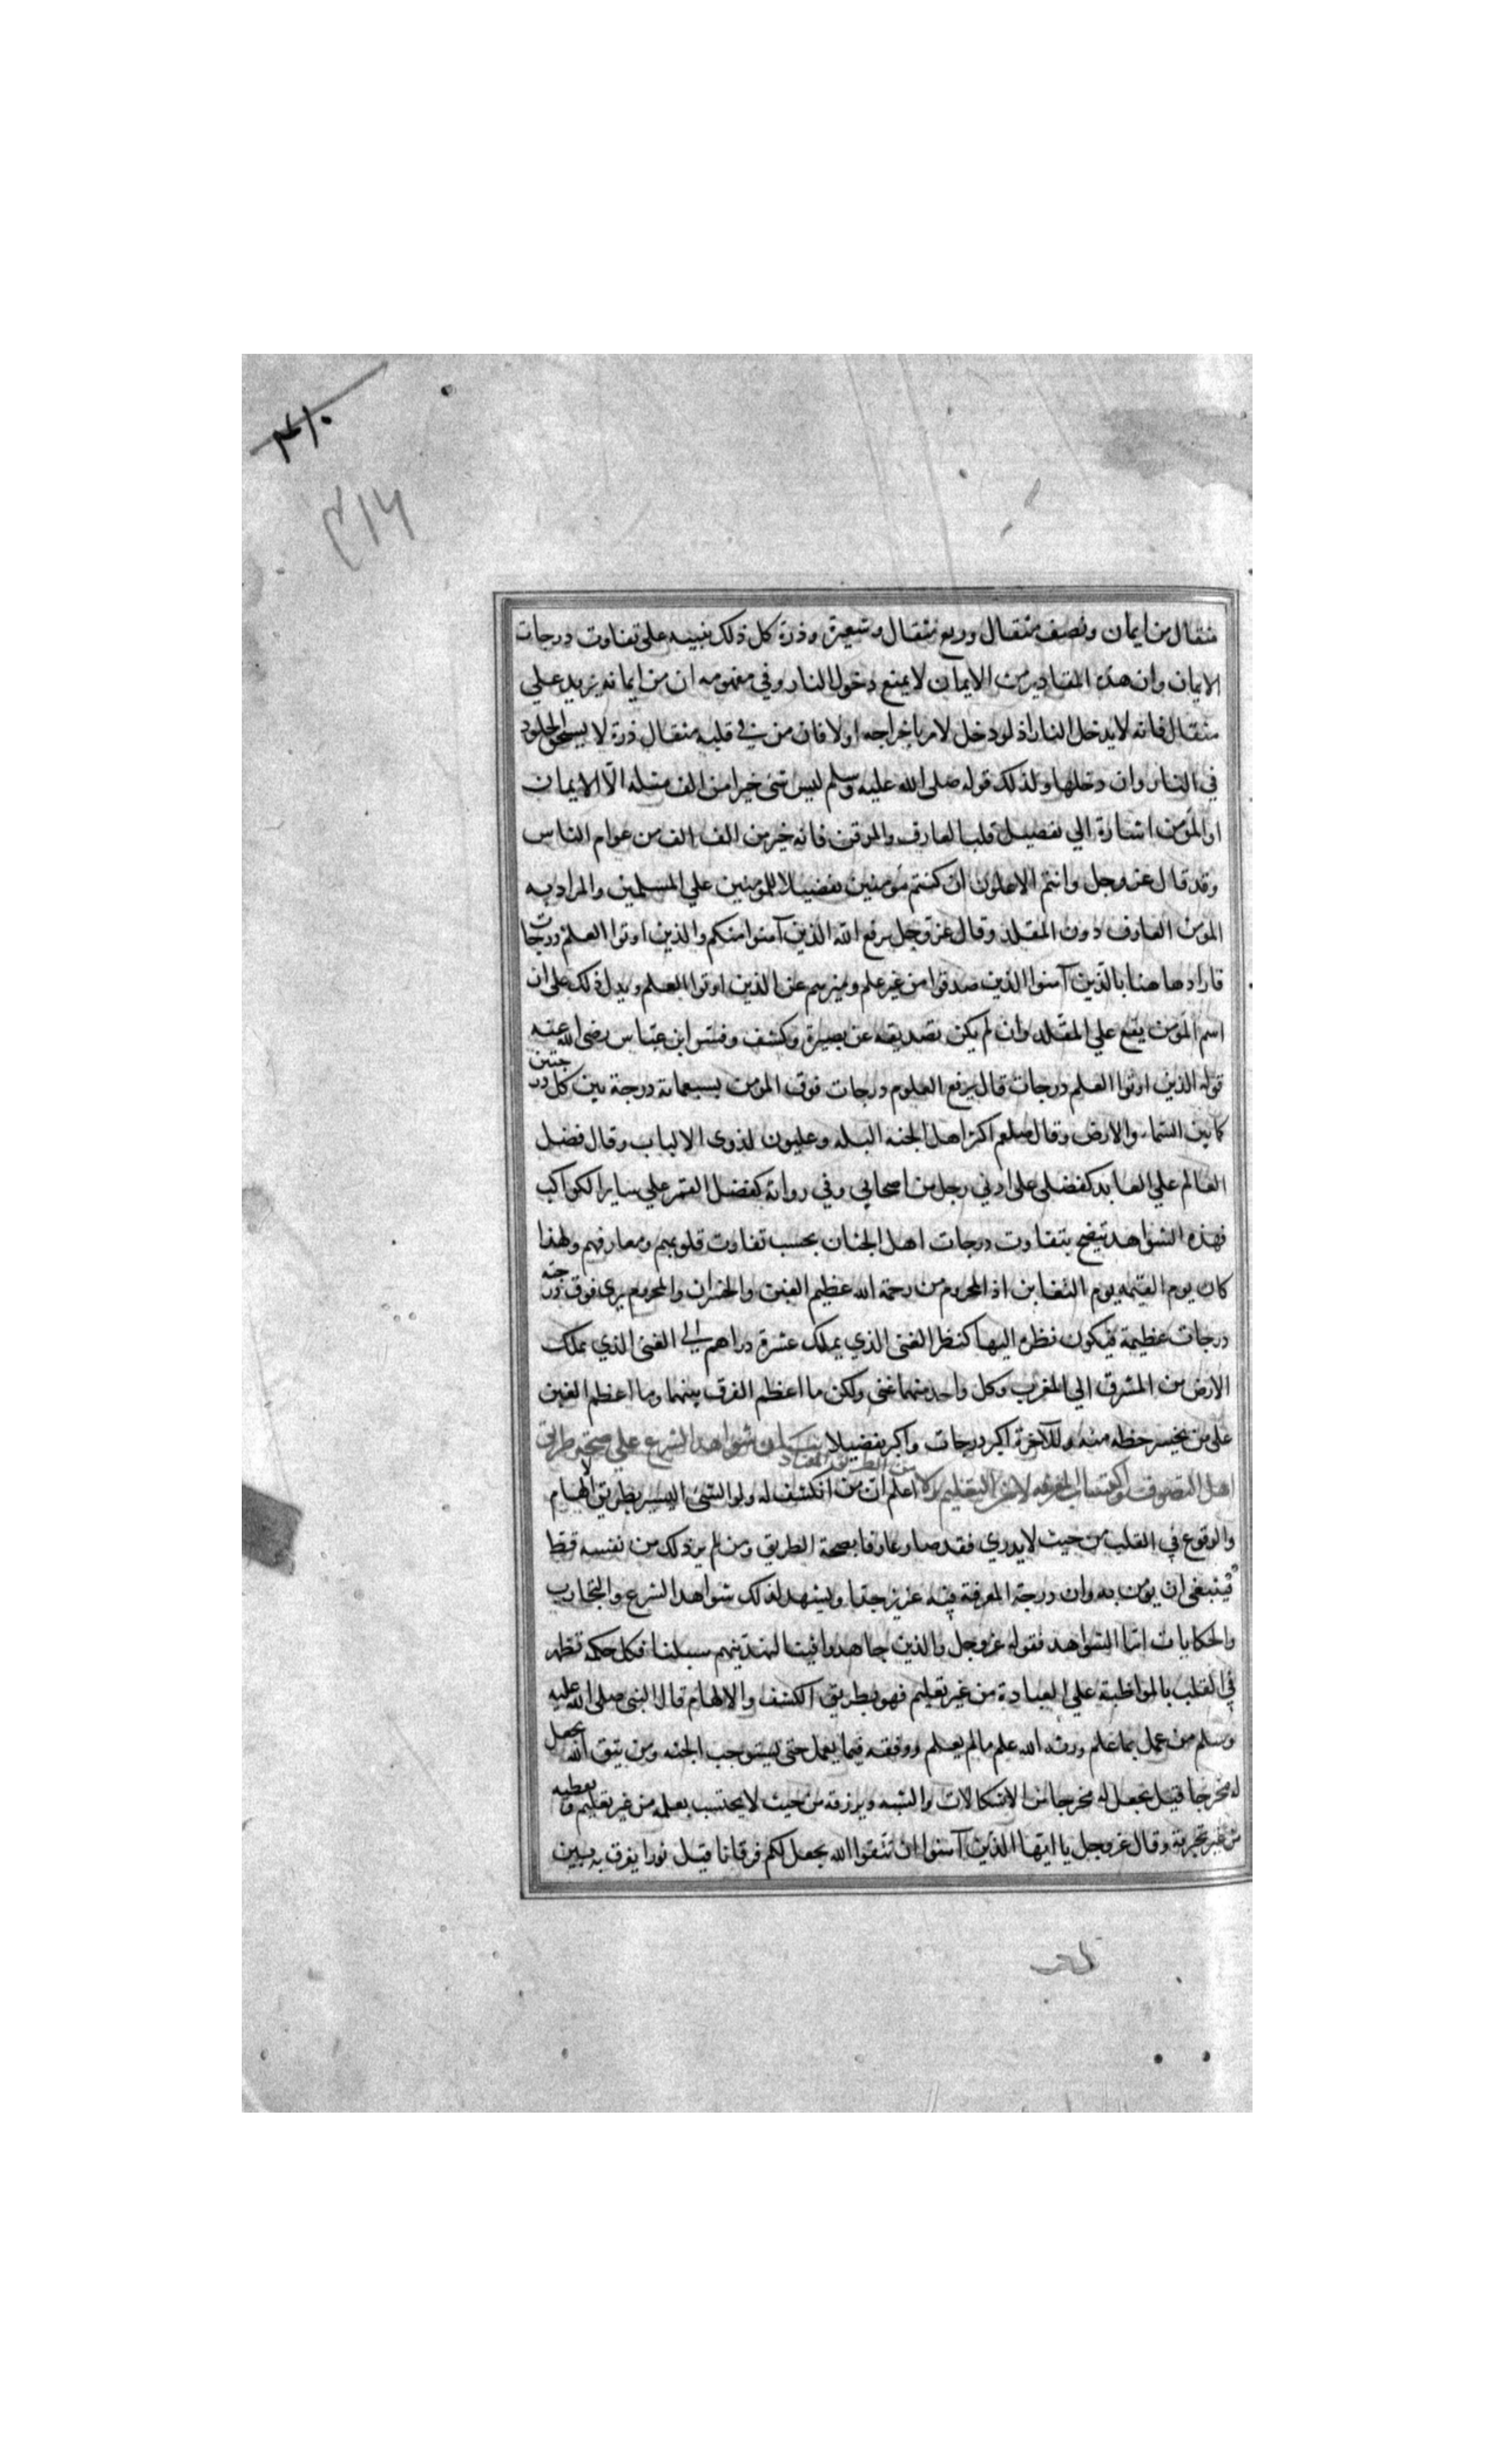 ۴۱۰
۴۱۶
مثقال من ايمان ونصف مثقال وربع مثقال وشعيرة وذرة كل ذلك تنبيه على تفاوت درجات
الايمان وان هذه المقادير من الايمان لا يمنع دخول النار وفي مفهومه ان من ايمانه يزيد علي
مثقال فانه لا يدخل النار اذ لو دخل لامر باخراجه اولا فان من في قلبه مثقال ذرة لا يستحق الخلود
في النار وان دخلها ولذلك قوله صلى الله عليه وسلم ليس شئ خيرا من الف مثله الّا الايمان
او المؤمن اشارة الي تفضيل قلب العارف والموقن فانه خير من الف الف من عوام الناس
وقد قال عز وجل وانتم الاعلون ان كنتم مؤمنين تفضيلا للمؤمنين علي المسلمين والمراد به
المؤمن العارف دون المقلد وقال عز وجل يرفع الله الذين آمنوا منكم والذين اوتوا العلم درجات
فاراد ها هنا بالذين آمنوا الذين صدقوا من غير علم وميزهم عن الذين اوتوا العلم ويدل ذلك على ان
اسم المؤمن يقع علي المقلد وان لم يكن تصديقه عن بصيرة وكشف وفسّر ابن عبّاس رضى الله عنه
قوله الذين اوتوا العلم درجات قال يرفع العلوم درجات فوق المؤمن بسبعمائة درجة بين كل درجتين
كما بين السماء والارض وقال صلعم اكثر اهل الجنة البله وعليون لذوى الالباب وقال فضل
العالم علي العابد كفضلي على ادني رجل من اصحابي وفي رواية كفضل القمر علي ساير الكواكب
فهذه الشواهد تتضح بتفاوت درجات اهل الجنان بحسب تفاوت قلوبهم ومعارفهم ولهذا
كان يوم القيمه يوم التغابن اذ المحروم من رحمة الله عظيم الغبن والخسران والمحروم يرى فوق درجته
درجات عظيمة فيكون نظره اليها كنظر الغنى الذي يملك عشرة دراهم الي الغنى الذي يملك
الارض من المشرق الي المغرب وكل واحد منهما غنى ولكن ما اعظم الفرق بينهما وما اعظم الغبن
على من يخسر حظه منه وللآخرة اكبر درجات واكبر تفضيلا بيان شواهد الشرع علي صحة طرائق
اهل التصوف في اكتساب المعرفة لا من التعليم ولا من الطريق المعتاد اعلم ان من انكشف له ولو الشئ اليسير بطريق الالهام
والوقوع في القلب من حيث لا يدري فقد صار عارفا بصحة الطريق ومن لم ير ذلك من نفسه قط
فينبغى ان يؤمن به وان درجة المعرفة فيه عزيز جدا ويشهد لذلك شواهد الشرع والتجارب
والحكايات امّا الشواهد فقوله عز وجل والذين جاهدوا فينا لنهدينهم سبلنا فكل حكمه تظهر
في القلب بالمواظبة علي العبادة من غير تعليم فهو بطريق الكشف والالهام قال النبى صلى الله عليه
وسلم من عمل بما علم ورثه الله علم ما لم يعلم ووفقه فيما يعمل حتى يستوجب الجنه ومن يتق الله يجعل
له مخرجا قيل يجعل له مخرجا من الاشكالات والشبه ويرزقه من حيث لا يحتسب يعلمه من غير تعليم ويعطيه
من غير تجربة وقال عز وجل يا ايها الذين آمنوا ان تتقوا الله يجعل لكم فرقانا قيل نورا يفرق به بين